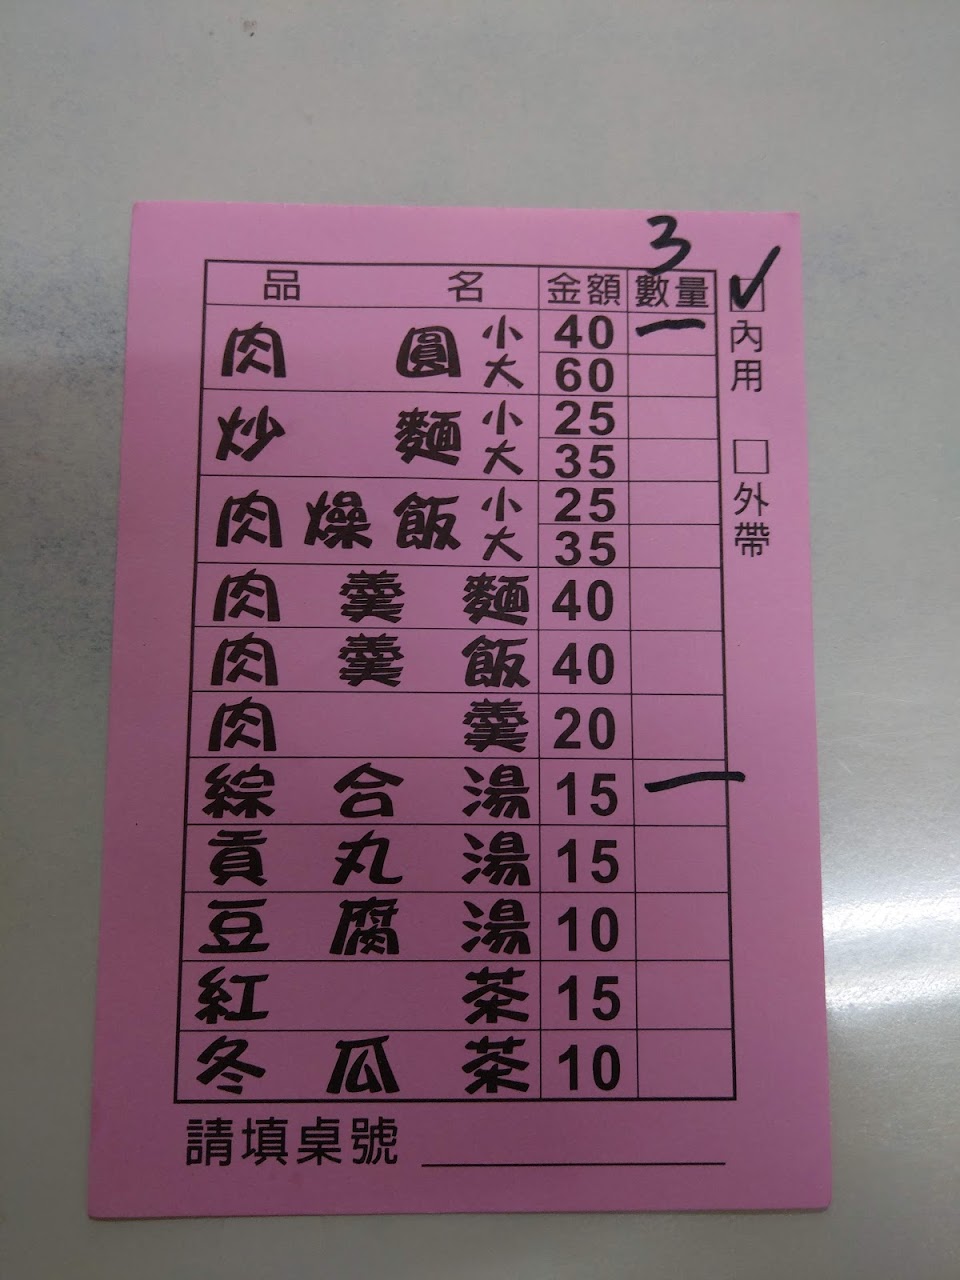 3
品名 金額 數量
肉圓 小 40 一
大 60
炒麵 小 25
大 35
肉燥飯 小 25
大 35
肉羹麵 40
肉羹飯 40
肉羹 20
綜合湯 15 一
貢丸湯 15
豆腐湯 10
紅茶 15
冬瓜茶 10
請填桌號
✓內用
□外帶